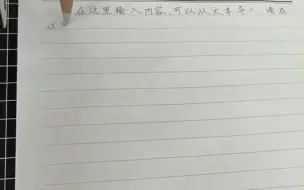 在这里输入内容,可以从文本导入 请在
这